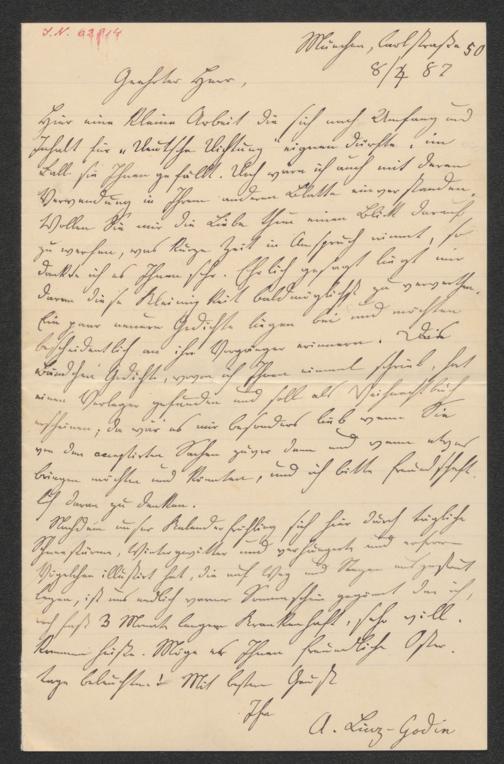 I.N. 62814
München, Carlstraße 50
8/4 87
Geehrter Herr,
Hier eine kleine Arbeit die sich nach Umfang und
Inhalt für „Deutsche Dichtung" eignen dürfte, im
Fall sie Ihnen gefällt. Doch wäre ich auch mit deren
Verwendung in Ihrem anderen Blatte einverstanden.
Wollen Sie mir die Liebe thun einen Blick darauf
zu werfen, was kurze Zeit in Anspruch nimmt, so
danke ich es Ihnen sehr. Ehrlich gesagt liegt mir
daran diese Kleinigkeit baldmöglichst zu verwerthen.
Ein paar neuere Gedichte liegen bei und möchten
bescheidentlich an ihre Vorgänger erinnern. Das
Bändchen Gedichte, wovon ich Ihnen einmal schrieb, hat
einen Verleger gefunden und soll als Weihnachtsbuch
erscheinen; da wär' es mir besonders lieb wenn Sie
von den acceptirten Sachen zuvor dann und wann etwas
bringen möchten und könnten, und ich bitte freundschaft-
lich daran zu denken.
Nachdem unser Kalenderfrühling sich hier durch tägliche
Schneestürme, Wintergewitter und verhungerte und erfrorene
Vögelchen illustrirt hat, die auf Weg und Stegen
liegen, ist uns endlich warmer Sonnenschein gegönnt den ich,
nach fast 3 Monate langer Krankenhaft, sehr will-
kommen heiße. Möge er Ihnen freundliche Oster-
tage beleuchten! Mit bestem Gruß
Ihre
A. Linz-Godin